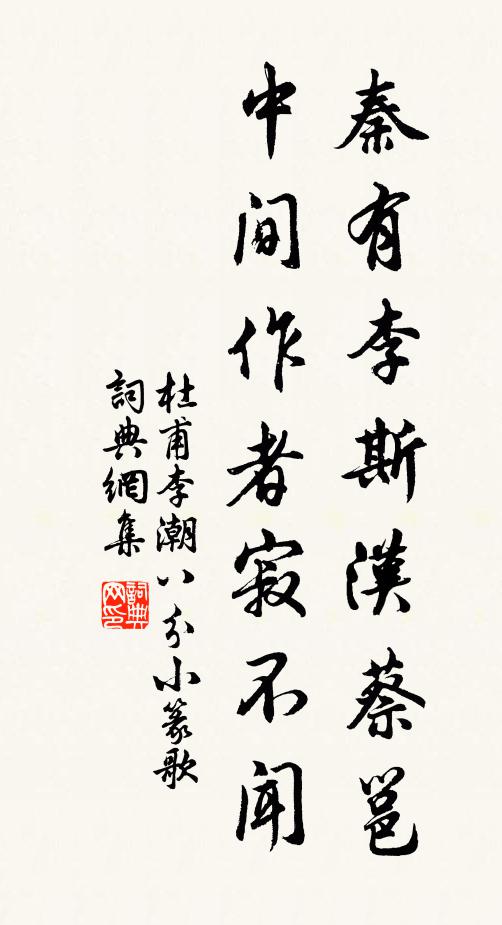 秦有李斯漢蔡邕
中間作者寂不聞
杜甫李潮八分小篆歌
詞典網集
詞典网印